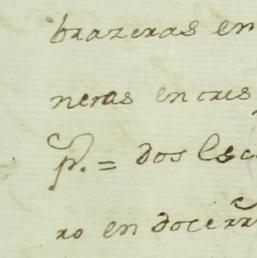 brazeras en
neras en tres
p.^ = dos Esc
ro en doce rr